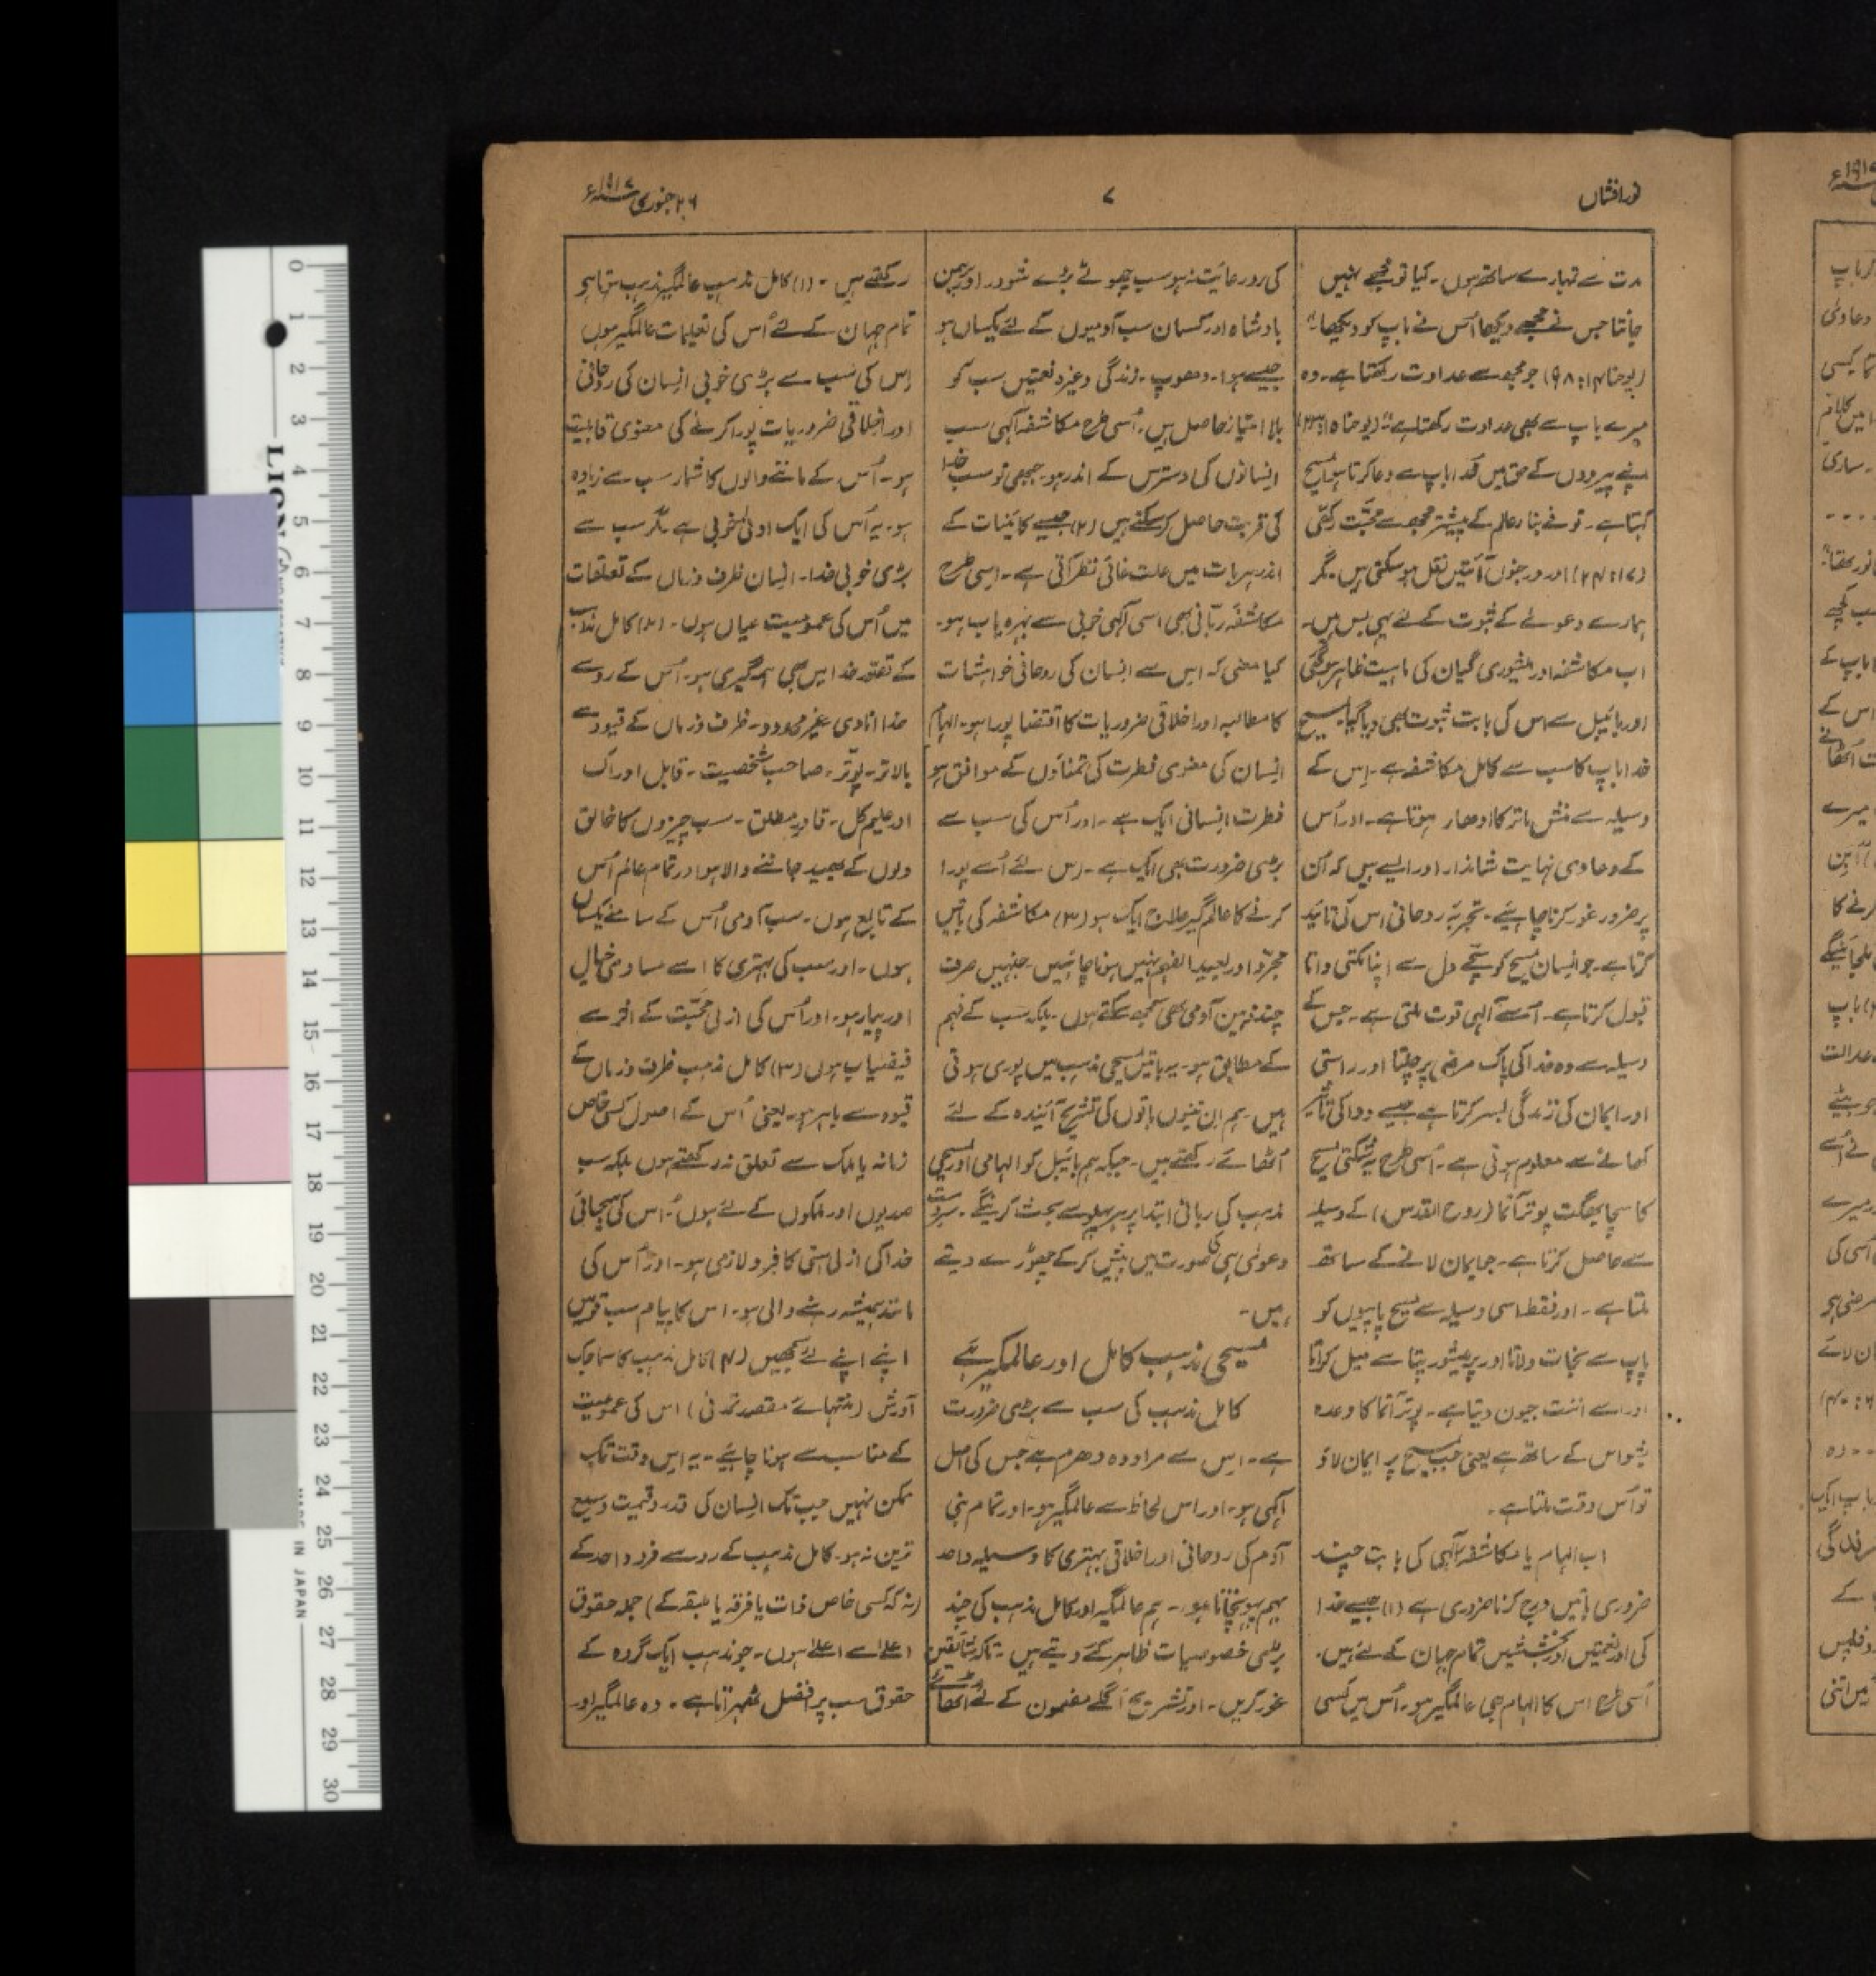 نور افشاں
۷
۲۶ جنوری ۱۹۱۷ء
مدت سے تمہارے ساتھ ہوں۔ کیا تو مجھے نہیں
جانتا جس نے مجھے دیکھا اُس نے باپ کو دیکھا“
(یوحنا ۱۴: ۹،۸) جو مجھ سے عداوت رکھتا ہے۔ وہ
میرے باپ سے بھی عداوت رکھتا ہے“ (یوحنا ۱۵: ۲۳)
اپنے پیروؤں کے حق میں خدا باپ سے دعا کرتا ہوا مسیح
کہتا ہے۔ تو نے بناء عالم کے پیشتر مجھ سے محبّت رکھی
(۱۷: ۲۴) اور درجنوں آئتیں نقل ہو سکتی ہیں۔ مگر
ہمارے دعوئے کے ثبوت کے لئے یہی بس ہیں۔
اب مکاشفہ اور ایشوری گیان کی ماہیت ظاہر ہو گئی
اور بائیبل سے اس کی بابت ثبوت بھی دیا گیا۔ مسیح
خدا باپ کا سب سے کامل مکاشفہ ہے۔ اِس کے
وسیلہ سے منش ماتر کا اودھار ہوتا ہے۔ اور اُس
کے دعاوی نہایت شاندار اور ایسے ہیں کہ اُن
پر ضرور غور کرنا چاہئیے۔ تجربہ روحانی اس کی تائید
کرتا ہے۔ جو انسان مسیح کو سچّے دل سے اپنا مکتی داتا
قبول کرتا ہے۔ اُسے الٰہی قوت ملتی ہے۔ جس کے
وسیلہ سے وہ خدا کی پاک مرضی پر چلتا اور راستی
اور ایمان کی زندگی بسر کرتا ہے جیسے دوا کی تاثیر
کھانے سے معلوم ہوتی ہے۔ اُسی طرح یہ شکتی مسیح
کا سچا بھگت پوتر آتما (روح القدس) کے وسیلہ
سے حاصل کرتا ہے۔ جو ایمان لانے کے ساتھ
ملتا ہے۔ اور فقط اسی وسیلہ سے مسیح پاپیوں کو
پاپ سے نجات دلاتا اور پرمیشور پتا سے میل کراتا
اور اسے اننت جیون دیتا ہے۔ پوتر آتما کا وعدہ
بشواس کے ساتھ ہے یعنی جب مسیح پر ایمان لاؤ
تو اُس وقت ملتا ہے۔
اب الہام یا مکاشفہ الٰہی کی بابت چند
ضروری باتیں درج کرنا ضروری ہے (۱) جیسے خدا
کی اور نعمتیں اور بخششیں تمام جہان کے لئے ہیں۔
اُسی طرح اس کا الہام بھی عالمگیر ہو۔ اُس میں کسی
کی رو رعایت نہ ہو سب چھوٹے بڑے شودر اور برہمن
بادشاہ اور کسان سب آدمیوں کے لئے یکساں ہو
جیسے ہوا۔ دھوپ۔ زندگی وغیرہ نعمتیں سب کو
بلا امتیاز حاصل ہیں۔ اُسی طرح مکاشفہ الٰہی سب
انسانوں کی دسترس کے اندر ہو۔ جبھی تو سب خدا
کی قربت حاصل کر سکتے ہیں (۲) جیسے کائینات کے
اندر ہر بات میں علت غائی نظر آتی ہے۔ اسی طرح
مکاشفہ ربّانی بھی اسی الٰہی خوبی سے بہرہ یاب ہو۔
کیا معنی کہ اس سے انسان کی روحانی خواہشات
کا مطالبہ اور اخلاقی ضروریات کا اقتضا پورا ہو۔ الہام
انسان کی معنوی فطرت کی تمناؤں کے موافق ہو
فطرت انسانی ایک ہے۔ اور اُس کی سب سے
بڑی ضرورت بھی ایک ہے۔ اِس لئے اُسے پورا
کرنے کا عالم گیر علاج ایک ہو (۳) مکاشفہ کی باتیں
مجرّد اور بعید الفہم نہیں ہونا چاہئیں۔ جنہیں صرف
چند ذہین آدمی ہی سمجھ سکتے ہوں۔ بلکہ سب کے فہم
کے مطابق ہو۔ یہ باتیں مسیحی مذہب میں پوری ہوتی
ہیں ہم ان تینوں باتوں کی تشریح آئیندہ کے لئے
اُٹھائے رکھتے ہیں۔ جبکہ ہم بائیبل کو الہامی اور مسیحی
مذہب کی ربانی ابتدا پر ہر پہلو سے بحث کرینگے۔ سردست
دعویٰ ہی کی صورت میں پیش کر کے چھوڑے دیتے
ہیں۔
مسیحی مذہب کامل اور عالمگیر ہے
کامل مذہب کی سب سے بڑی ضرورت
ہے۔ اِس سے مراد وہ دھرم ہے جس کی اصل
الٰہی ہو۔ اور اس لحاظ سے عالمگیر ہو۔ اور تمام بنی
آدم کی روحانی اور اخلاقی بہتری کا وسیلہ واحد
بہم پہونچاتا ہو۔ ہم عالمگیر اور کامل مذہب کی چند
بڑی خصوصیات ظاہر کئے دیتے ہیں۔ تاکہ شائقین
غور کریں۔ اور تشریح اگلے مضمون کے لئے اٹھائے
رکھتے ہیں۔ (۱) کامل مذہب عالمگیر مذہب ہوتا ہے
تمام جہان کے لئے اُس کی تعلیمات عالمگیر ہوں
اِس کی سب سے بڑی خوبی انسان کی روحانی
اور اخلاقی ضروریات پورا کرنے کی معنوی قابلیت
ہو۔ اُس کے ماننے والوں کا شمار سب سے زیادہ
ہو۔ یہ اُس کی ایک ادنیٰ خوبی ہے مگر سب سے
بڑی خوبی خدا۔ انسان ظرف و زماں کے تعلقات
میں اُس کی عمومیت عیاں ہوں۔ (۲) کامل مذہب
کے تصّور خدا میں بھی ہمہ گیری ہو۔ اُس کے روسے
خدا انادی غیر محدود۔ ظرف و زماں کے قیود سے
بالاتر۔ پوتّر۔ صاحب شخصیت۔ قابل ادراک
اور علیم کل۔ قادر مطلق۔ سب چیزوں کا خالق
دلوں کے بھید جاننے والا ہو اور تمام عالم اُس
کے تابع ہوں۔ سب آدمی اُس کے سامنے یکساں
ہوں۔ اور سب کی بہتری کا اسے مساوی خیال
اور پیار ہو۔ اور اُس کی ازلی محبّت کے اثر سے
فیضیاب ہوں (۳) کامل مذہب ظرف و زماں کے
قیود سے باہر ہو۔ یعنی اُس کے اصول کسی خاص
زمانہ یا ملک سے تعلق نہ رکھتے ہوں بلکہ سب
صدیوں اور ملکوں کے لئے ہوں۔ اُس کی سچائی
خدا کی ازلی ہستی کا جز و لازمی ہو۔ اور اُس کی
مانند ہمیشہ رہنے والی ہو۔ اس کا پیام سب قومیں
اپنے اپنے لئے سمجھیں (۴) کامل مذہب کا سماجک
آدرش (منتہائے مقصد تمدنی) اس کی عمومیت
کے مناسب سے ہونا چاہئیے۔ یہ اس وقت تک
ممکن نہیں جب تک انسان کی قدر و قیمت وسیع
ترین نہ ہو۔ کامل مذہب کے روسے فرد واحد کے
(نہ کہ کسی خاص ذات یا فرقہ یا طبقہ کے) جملہ حقوق
اعلےٰ سے اعلےٰ ہوں۔ جو مذہب ایک گروہ کے
حقوق سب پر افضل ٹھہراتا ہے۔ وہ عالمگیر اور